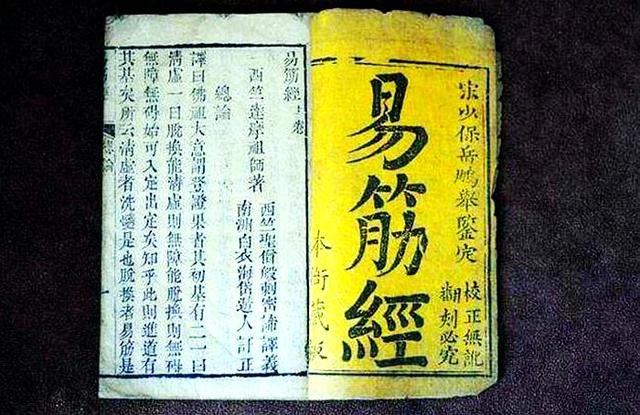 宋少保岳鵬舉鑒定
易筋經
校正無訛
翻刻必究
本衙藏板
易筋經 卷
西竺達摩祖師著
西竺聖僧般剌密諦譯義
南洲白衣海岱人訂正
總論
譯曰佛祖大意謂登證果者其初基有二一曰
清虛一曰脫換能清虛則無障能脫換則無碍
無障無碍始可入定出定矣知乎此則進道有
其基矣所云清虛者洗髓是也脫換者易筋是